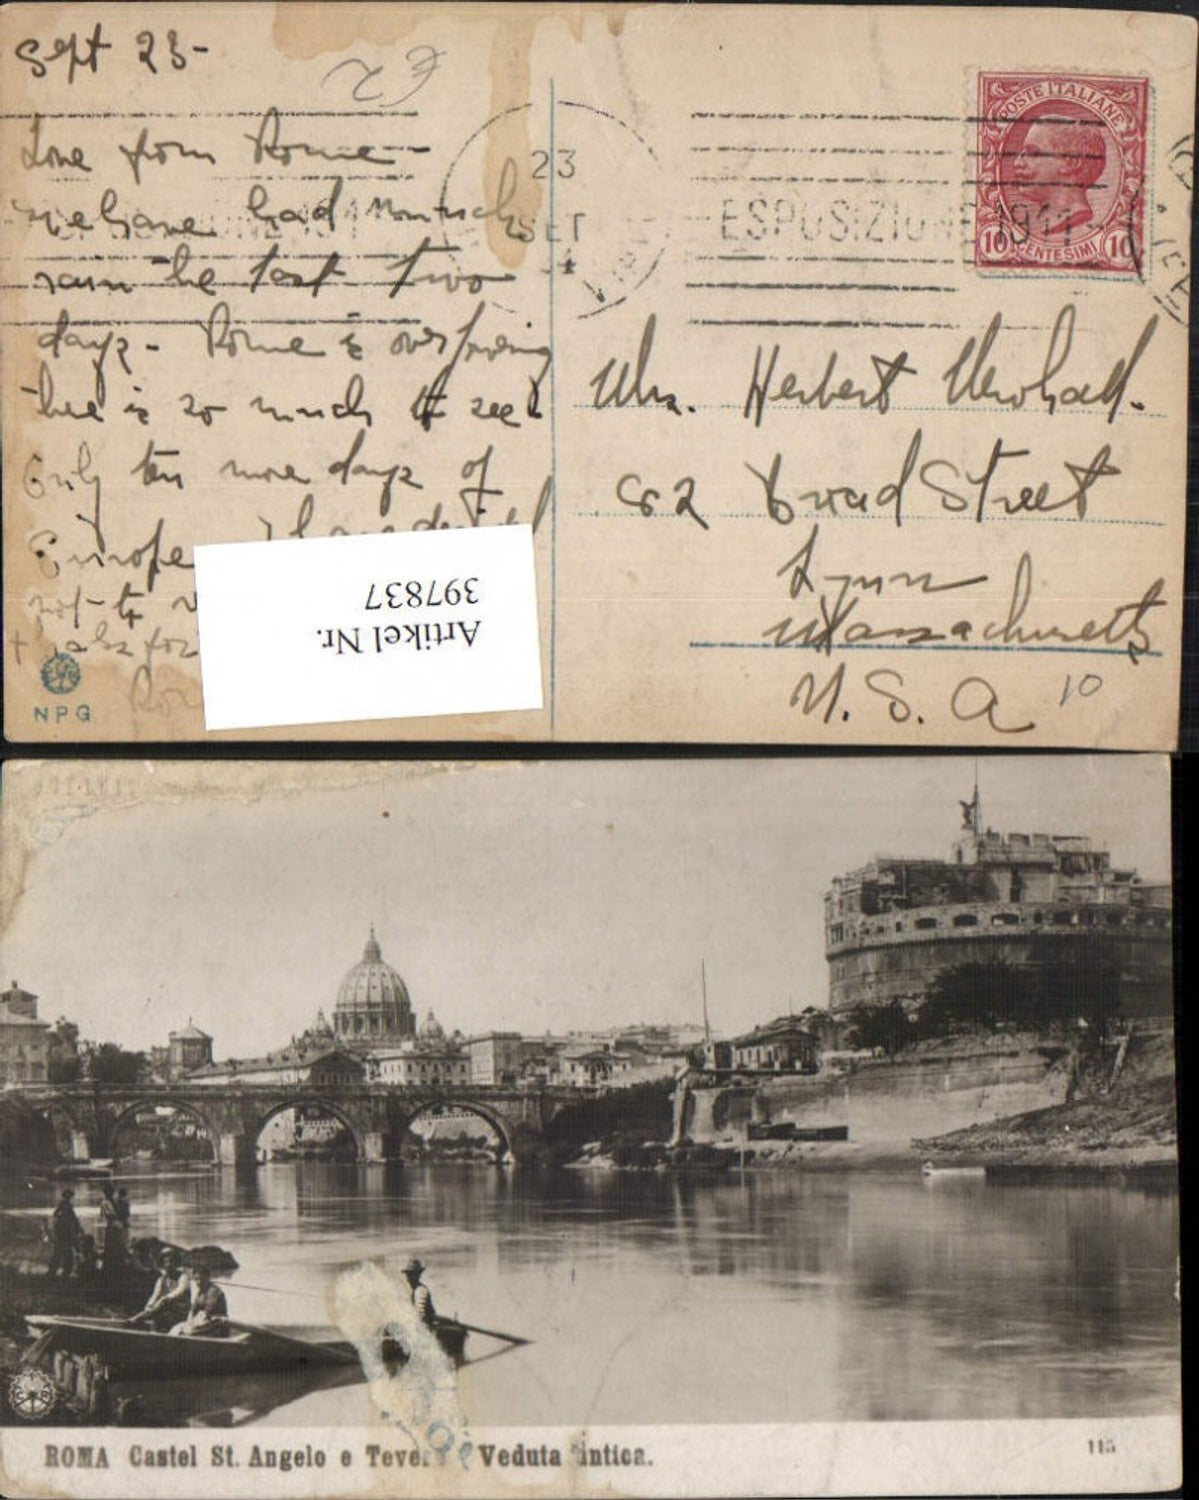 Sept 23-
€2
Love from Rome -
We have had much
rain the last two
days - Rome is overpowering
there is so much to see
Only ten more days of
Europe
not to
+
Ror
NPG
Artikel Nr.
397837
23
SET
ESPOSIZIONE 1911
POSTE ITALIANE
10 CENTESIMI 10
Mrs. Herbert Newhall.
82 Broad Street
Lynn
Massachusetts
U. S. A
10
ROMA Castel St. Angelo e Teve Veduta antica.
115